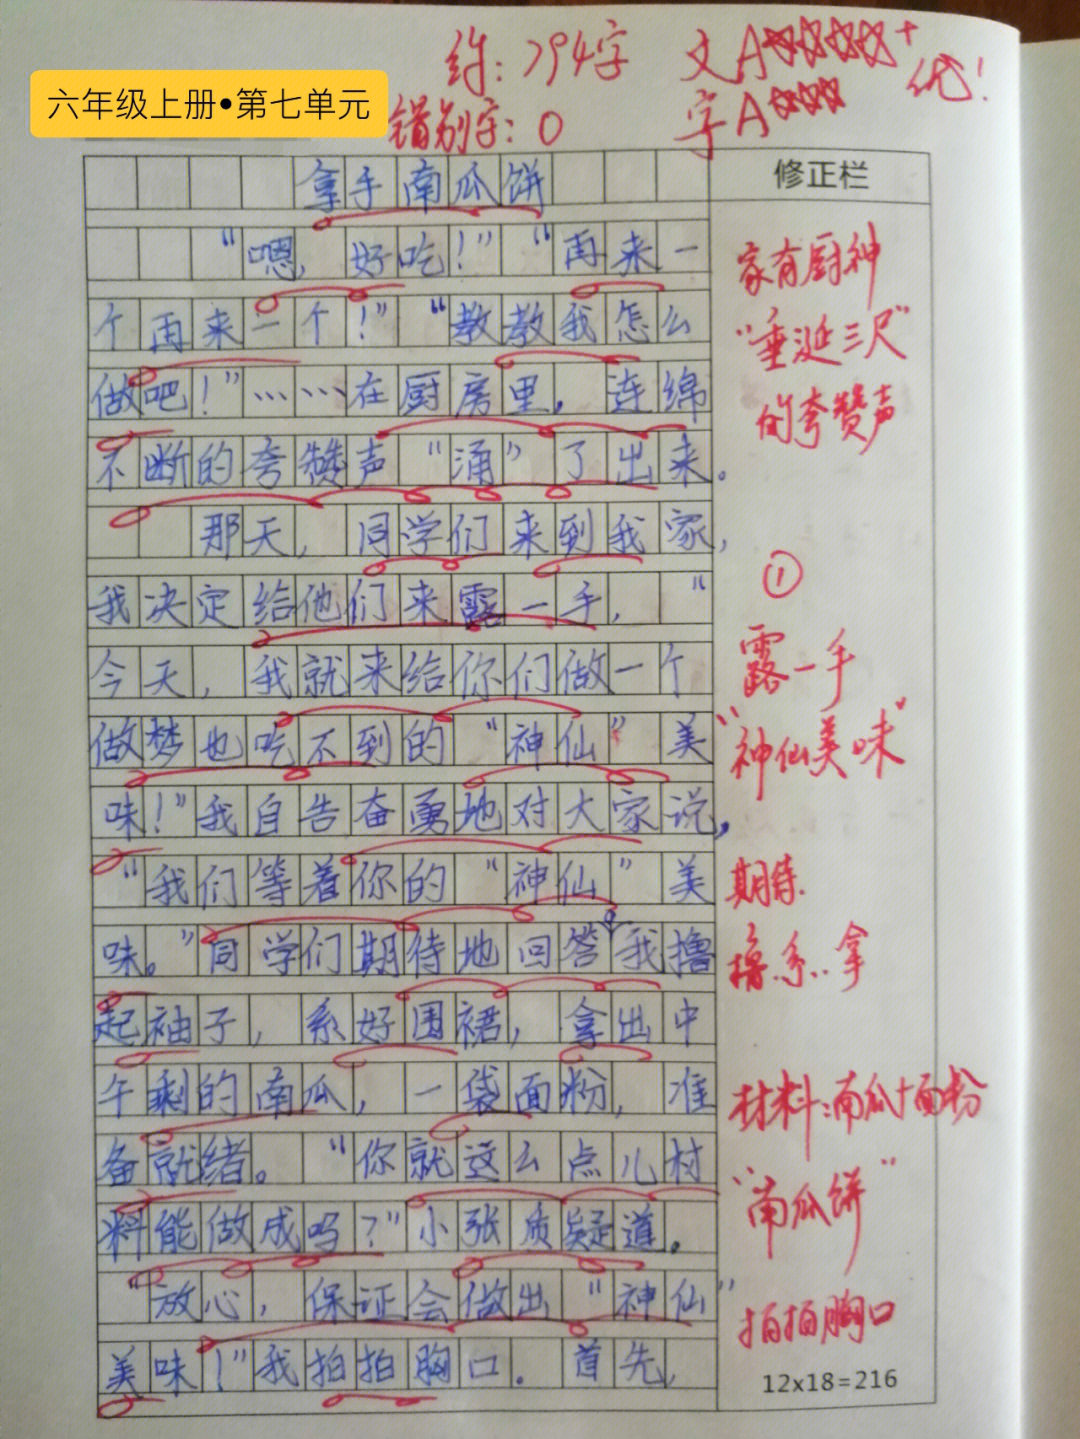 六年级上册•第七单元
约:794字 文A☆☆☆☆+
错别字:0 字A☆☆☆ 优!
修正栏
拿手南瓜饼
“嗯,好吃!”“再来一
个再来一个!”“教教我怎么
做吧!”……在厨房里,连绵
不断的夸赞声“涌”了出来。
那天,同学们来到我家,
我决定给他们来露一手,“
今天,我就来给你们做一个
做梦也吃不到的“神仙”美
味!”我自告奋勇地对大家说,
“我们等着你的“神仙”美
味。”同学们期待地回答。我撸
起袖子,系好围裙,拿出中
午剩的南瓜,一袋面粉,准
备就绪。“你就这么点儿材
料能做成吗?”小张质疑道。
“放心,保证会做出“神仙”
美味!”我拍拍胸口。首先,
家有厨神
“垂涎三尺”
的夸赞声
①
露一手
“神仙美味”
期待.
撸.系.拿
材料:南瓜+面粉
“南瓜饼”
拍拍胸口
12x18=216